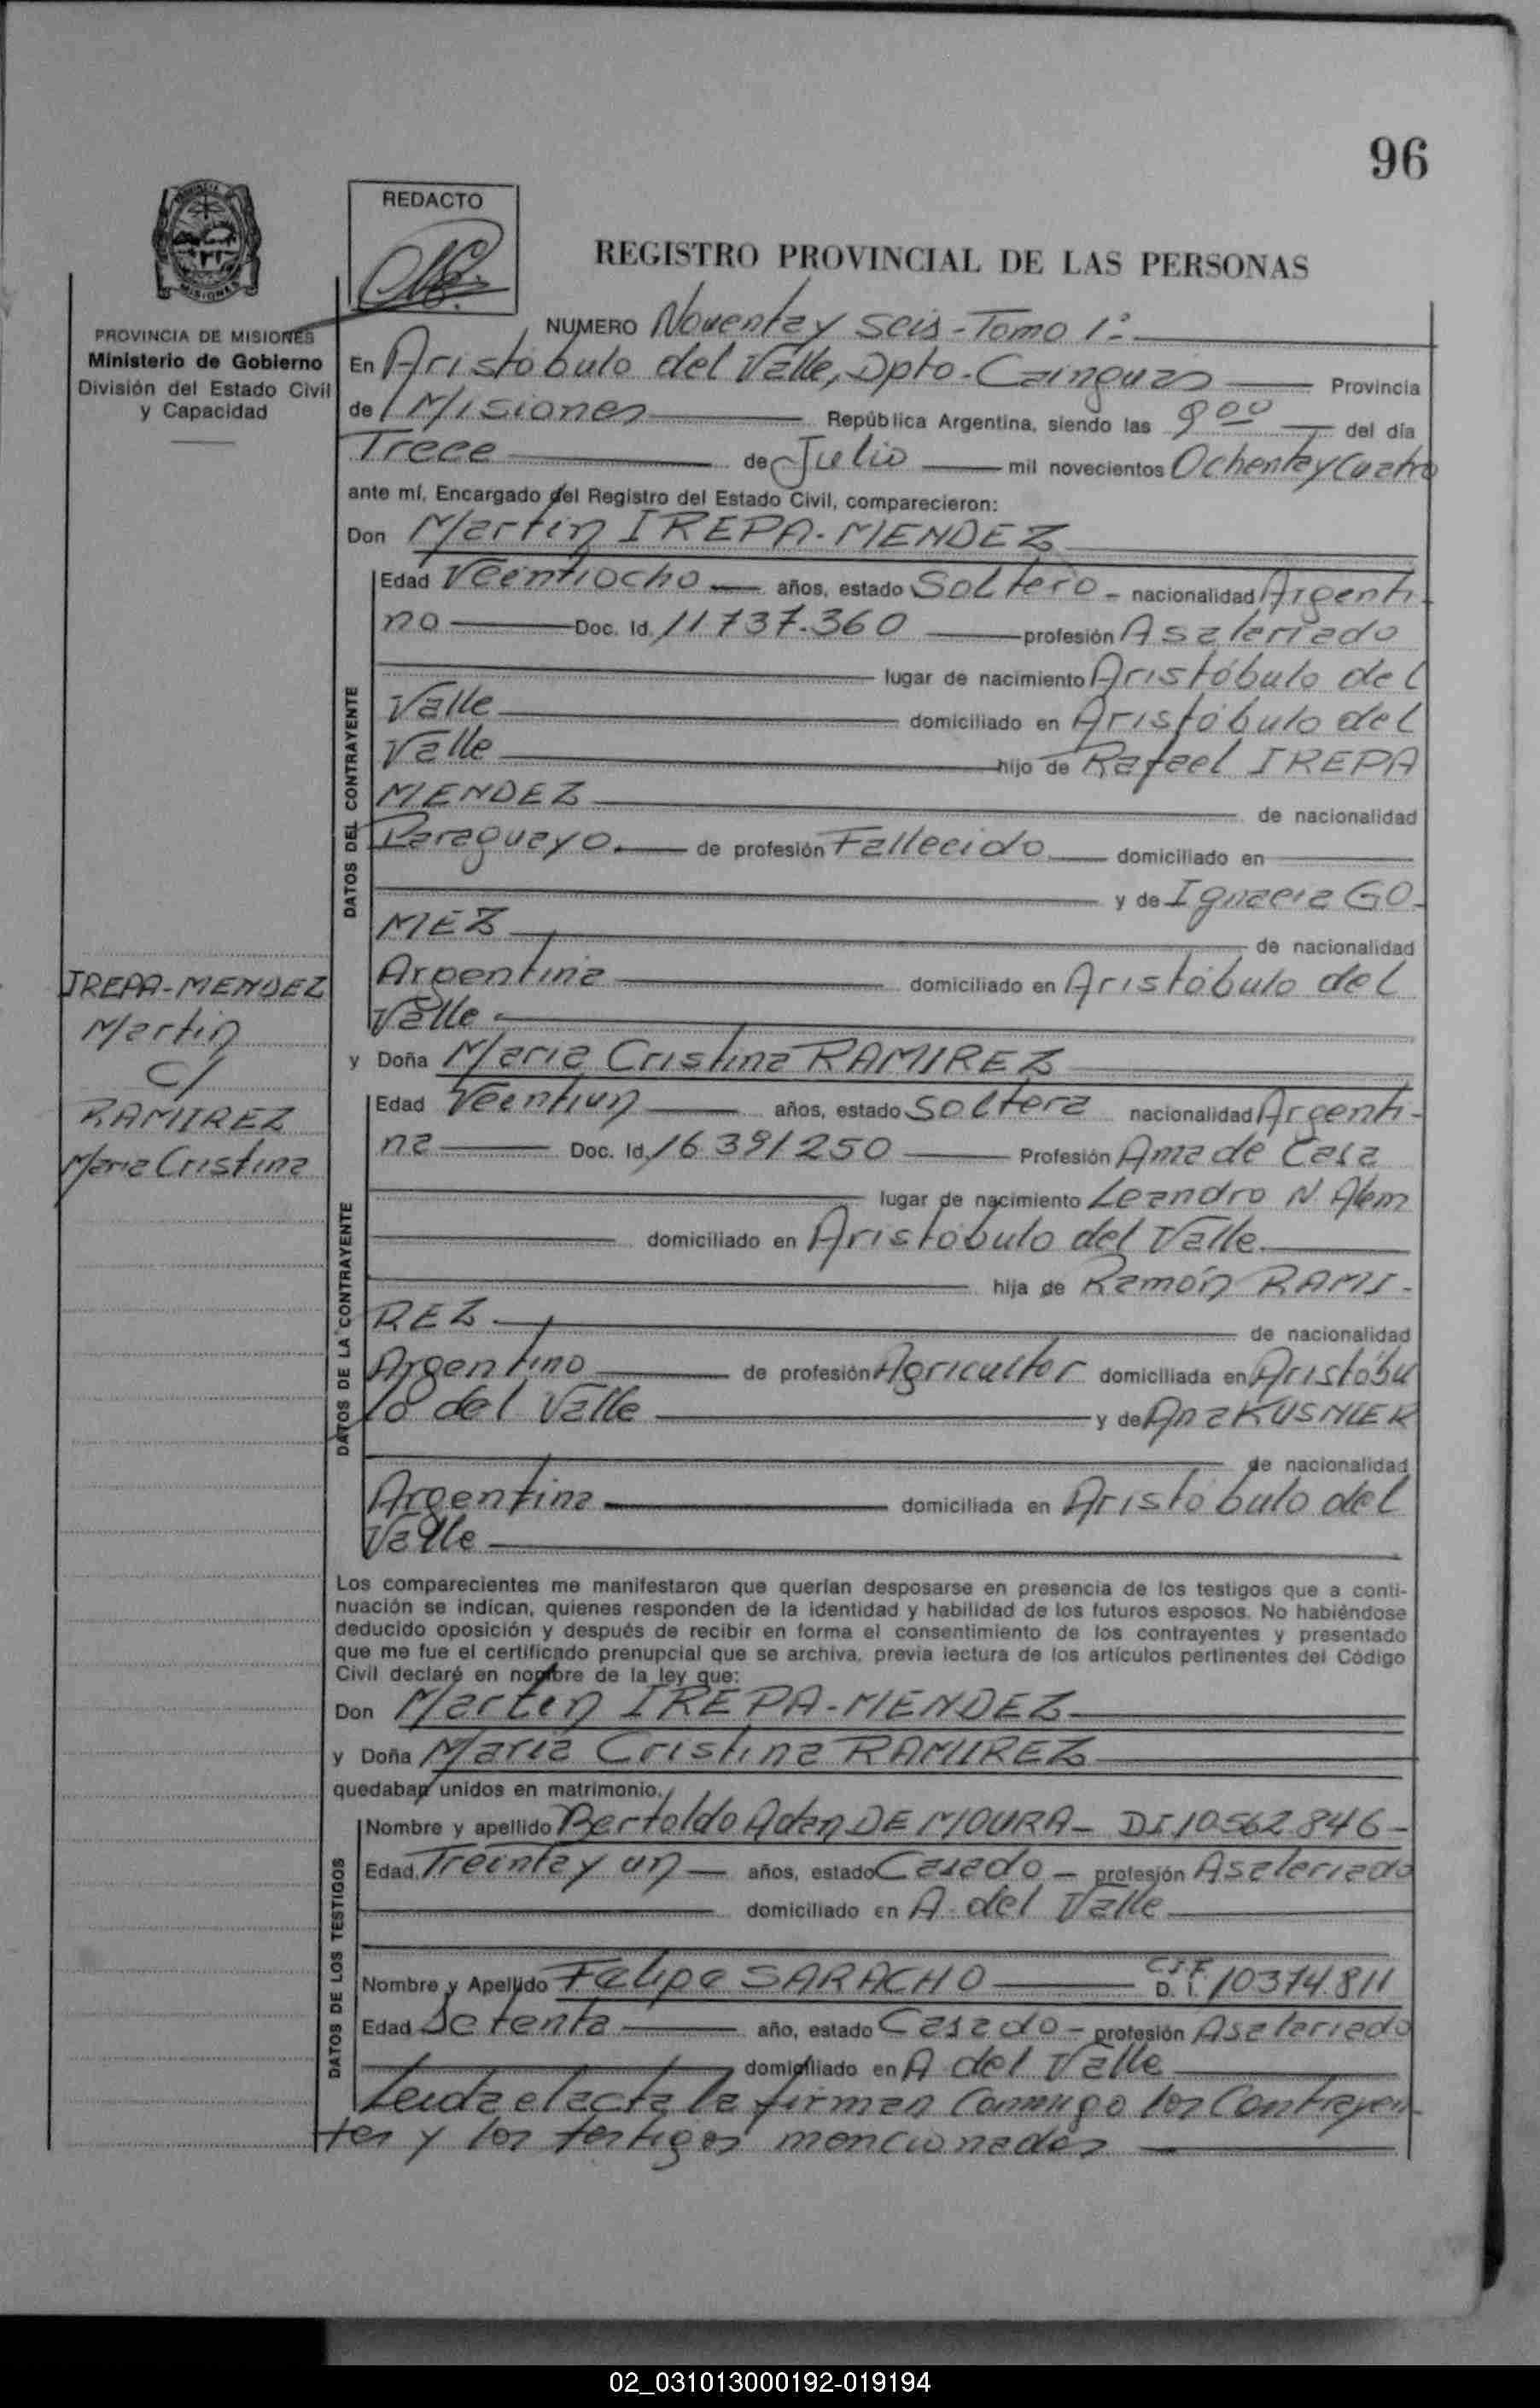 96
REDACTO
REGISTRO PROVINCIAL DE LAS PERSONAS
MISIONES
PROVINCIA DE MISIONES
Ministerio de Gobierno
División del Estado Civil
y Capacidad
NUMERO Noventa y seis - Tomo 1º
En Aristóbulo del Valle, Dpto. Cainguas Provincia
de Misiones República Argentina, siendo las 9 00 del día
Trece de Julio mil novecientos Ochenta y Cuatro
ante mí, Encargado del Registro del Estado Civil, comparecieron:
Don Martin IREPA-MENDEZ
DATOS DEL CONTRAYENTE
Edad Veentiocho años, estado Soltero - nacionalidad Argenti-
no Doc. Id. 11737.360 profesión Asalariado
lugar de nacimiento Aristóbulo del
Valle domiciliado en Aristóbulo del
Valle hijo de Rafael IREPA
MENDEZ de nacionalidad
Paraguayo de profesión Fallecido domiciliado en
y de Ignacia GO-
MEZ de nacionalidad
Argentina domiciliado en Aristóbulo del
Valle
IREPA-MENDEZ
Martin
C/
RAMIREZ
Maria Cristina
y Doña Maria Cristina RAMIREZ
DATOS DE LA CONTRAYENTE
Edad Veentiun años, estado Soltera nacionalidad Argenti-
na Doc. Id. 16.391250 Profesión Ama de Casa
lugar de nacimiento Leandro N. Alem
domiciliado en Aristóbulo del Valle
hija de Ramón RAMI-
REZ de nacionalidad
Argentino de profesión Agricultor domiciliada en Aristóbu
lo del Valle y de Ana KUSNIER
de nacionalidad
Argentina domiciliada en Aristóbulo del
Valle
Los comparecientes me manifestaron que querían desposarse en presencia de los testigos que a conti-
nuación se indican, quienes responden de la identidad y habilidad de los futuros esposos. No habiéndose
deducido oposición y después de recibir en forma el consentimiento de los contrayentes y presentado
que me fue el certificado prenupcial que se archiva, previa lectura de los artículos pertinentes del Código
Civil declaré en nombre de la ley que:
Don Martin IREPA-MENDEZ
y Doña Maria Cristina RAMIREZ
quedaban unidos en matrimonio.
DATOS DE LOS TESTIGOS
Nombre y apellido Bertoldo Adan DE MOURA - DI 10.562.846-
Edad Treinta y un años, estado Casado - profesión Asalariado
domiciliado en A. del Valle
Nombre y Apellido Felipe SARACHO D. I. 10374.811
Edad Setenta año, estado Casado - profesión Asalariado
domiciliado en A del Valle
Leida el acta la firman Conmigo los Contrayen-
tes y los testigos mencionados
02_031013000192-019194